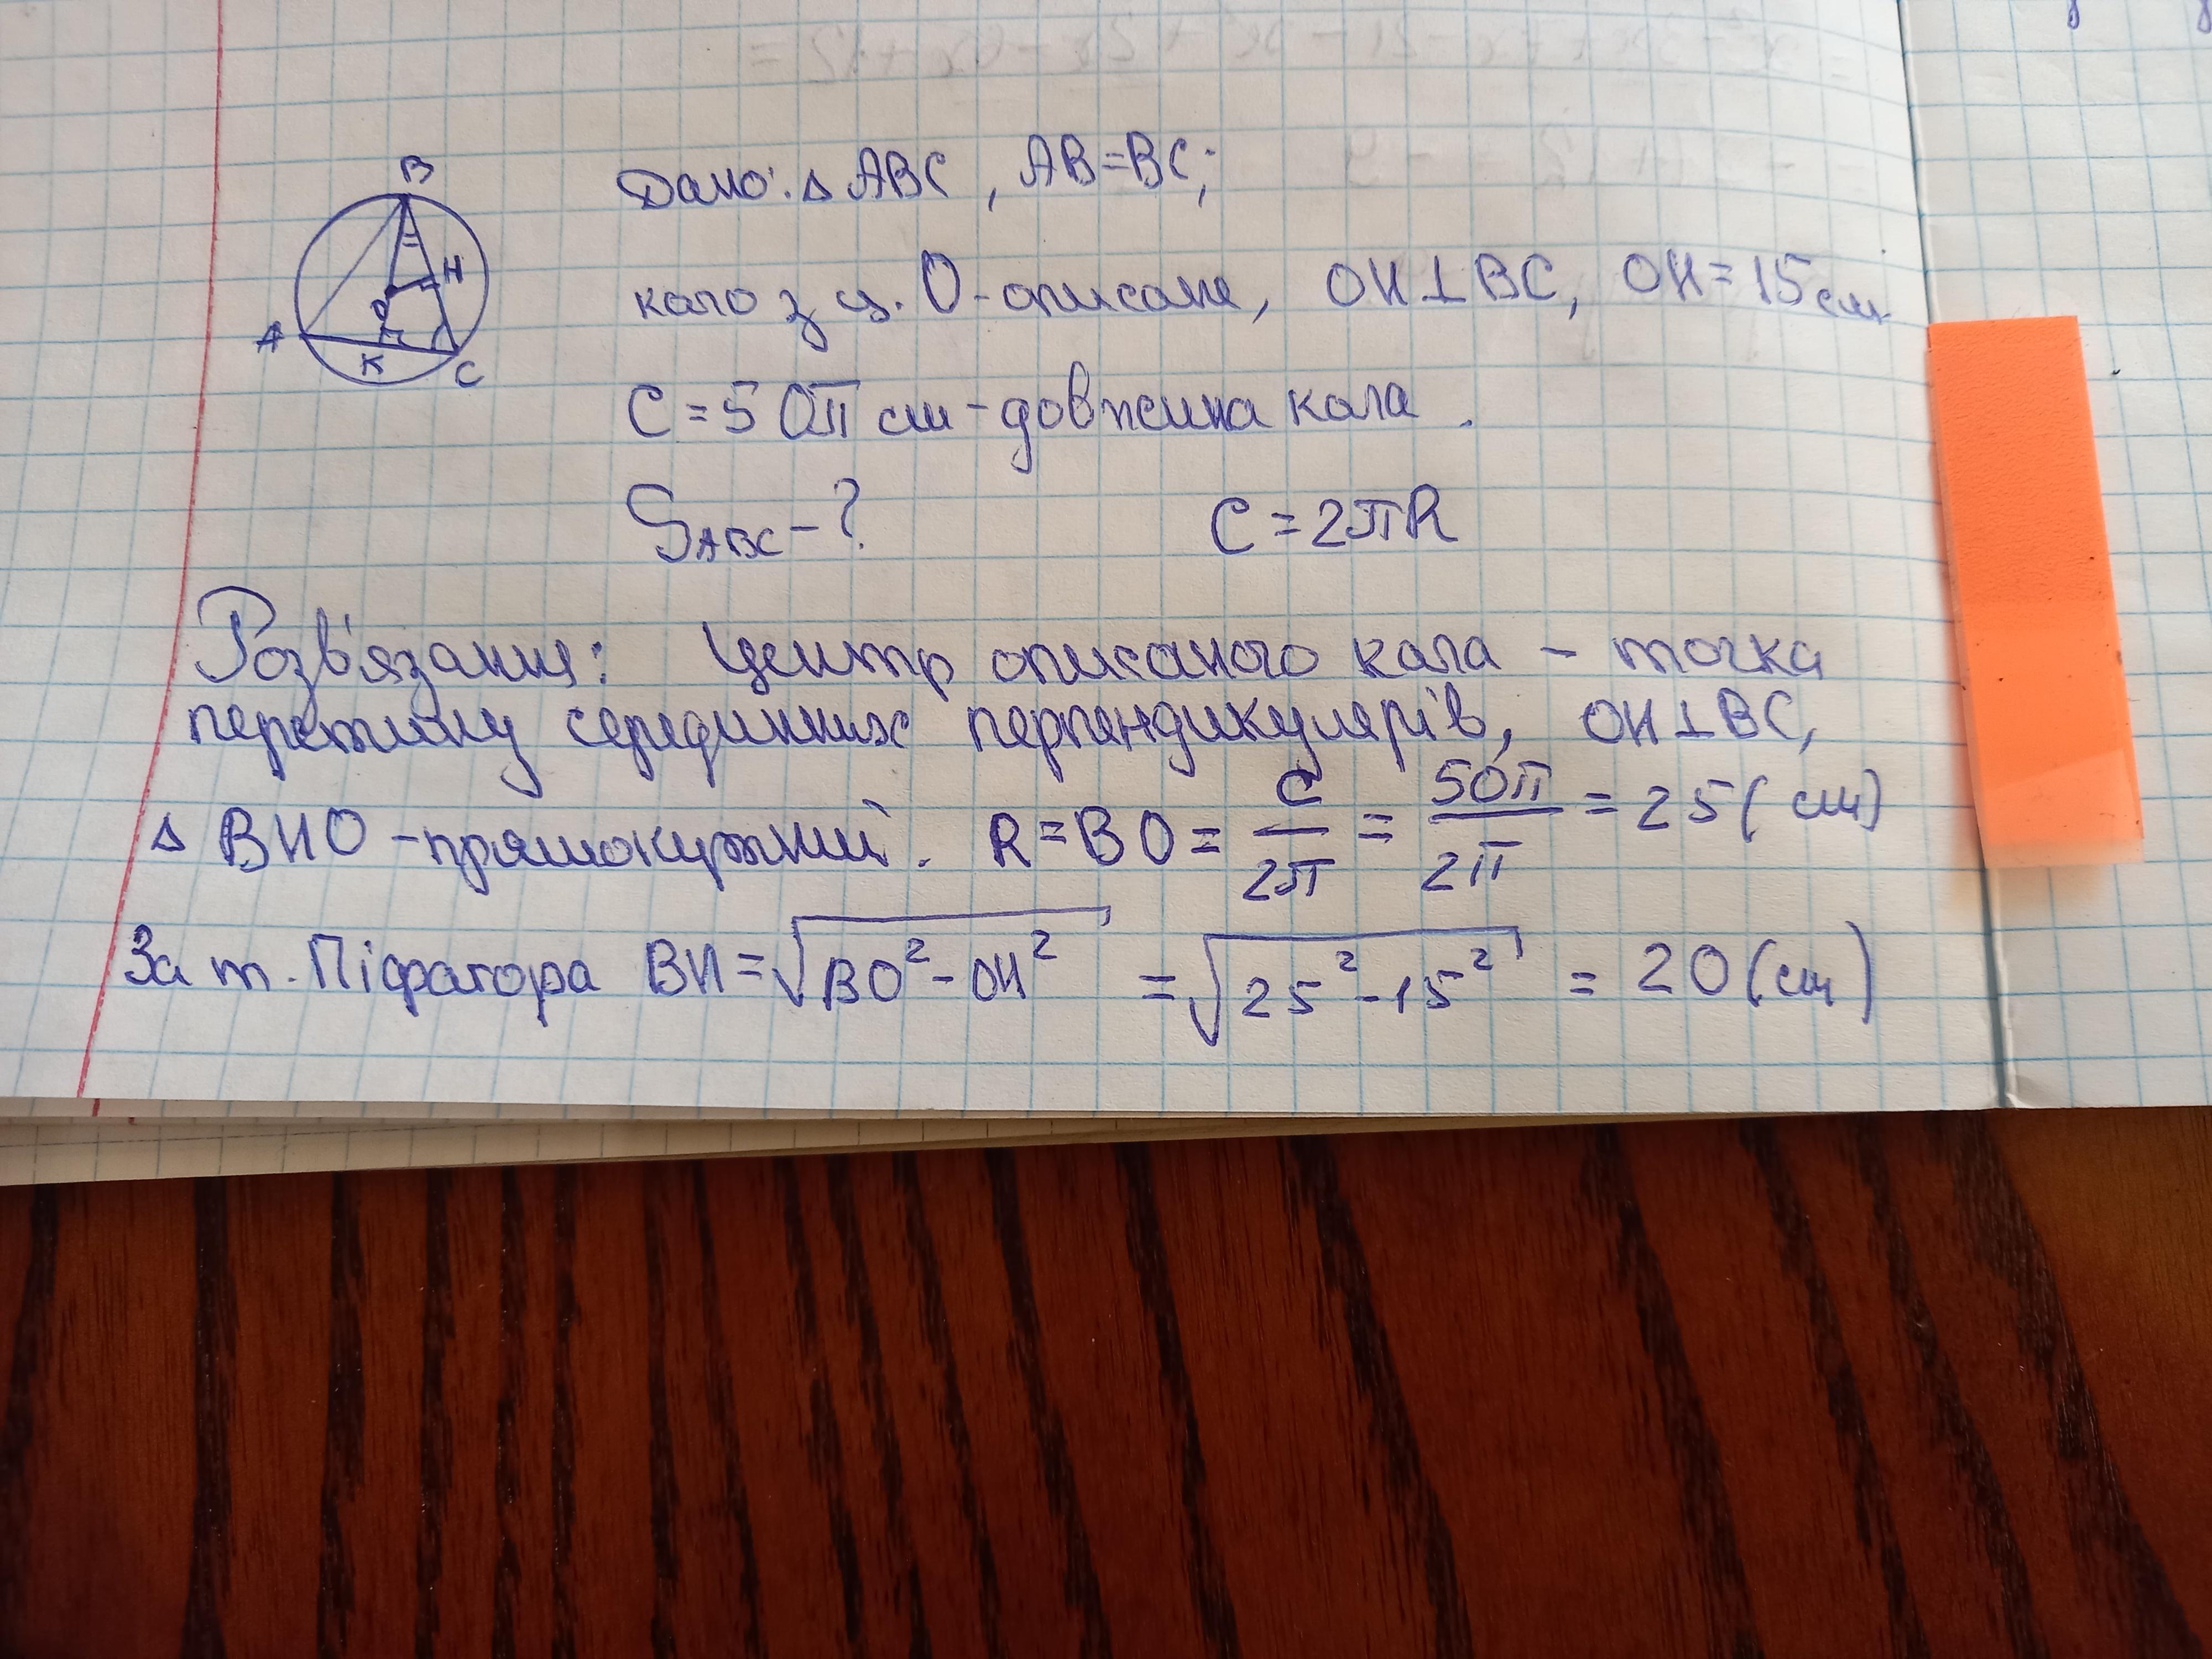 Дано: △ ABC, AB=BC;
коло з ц. O-описане, OH⊥BC, OH=15см
C=50π см-довжина кола.
S_ABC-?
C=2πR
B
H
O
A
K
C
Розв'язання: Центр описаного кола - точка
перетину серединних перпендикулярів, OH⊥BC,
△ BHO-прямокутний. R=BO= C/2π = 50π/2π =25(см)
За т. Піфагора BH=√BO²-OH² =√25²-15² = 20(см)